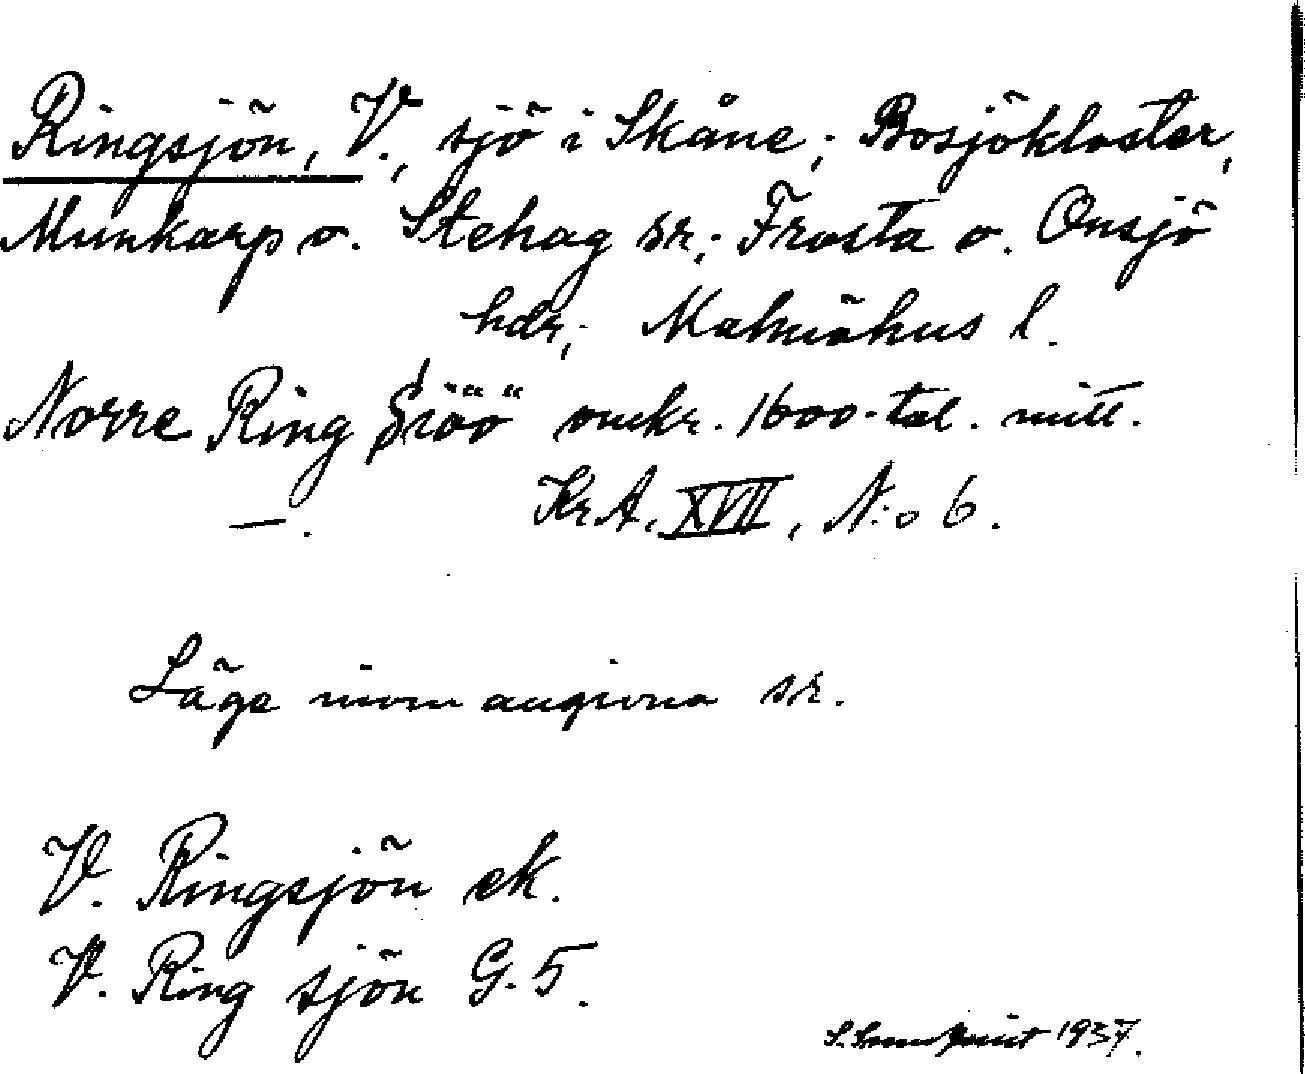 Ringsjön, V., sjö i Skåne; Bosjökloster,
Munkarp o. Stehag sr.; Frosta o. Onsjö
hdr; Malmöhus l.
Norre Ring Siöö omkr. 1600-tal. mitt.
—. Kr.A. XVII, N:o 6.
Läge inom angivna sr.
V. Ringsjön ek.
V. Ring sjön G. 5.
1937.